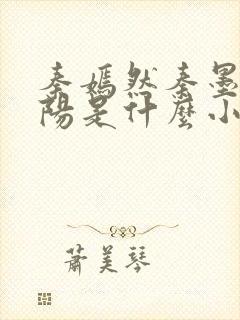 秦嫣然秦墨
陽是什麼小
蕭美琴